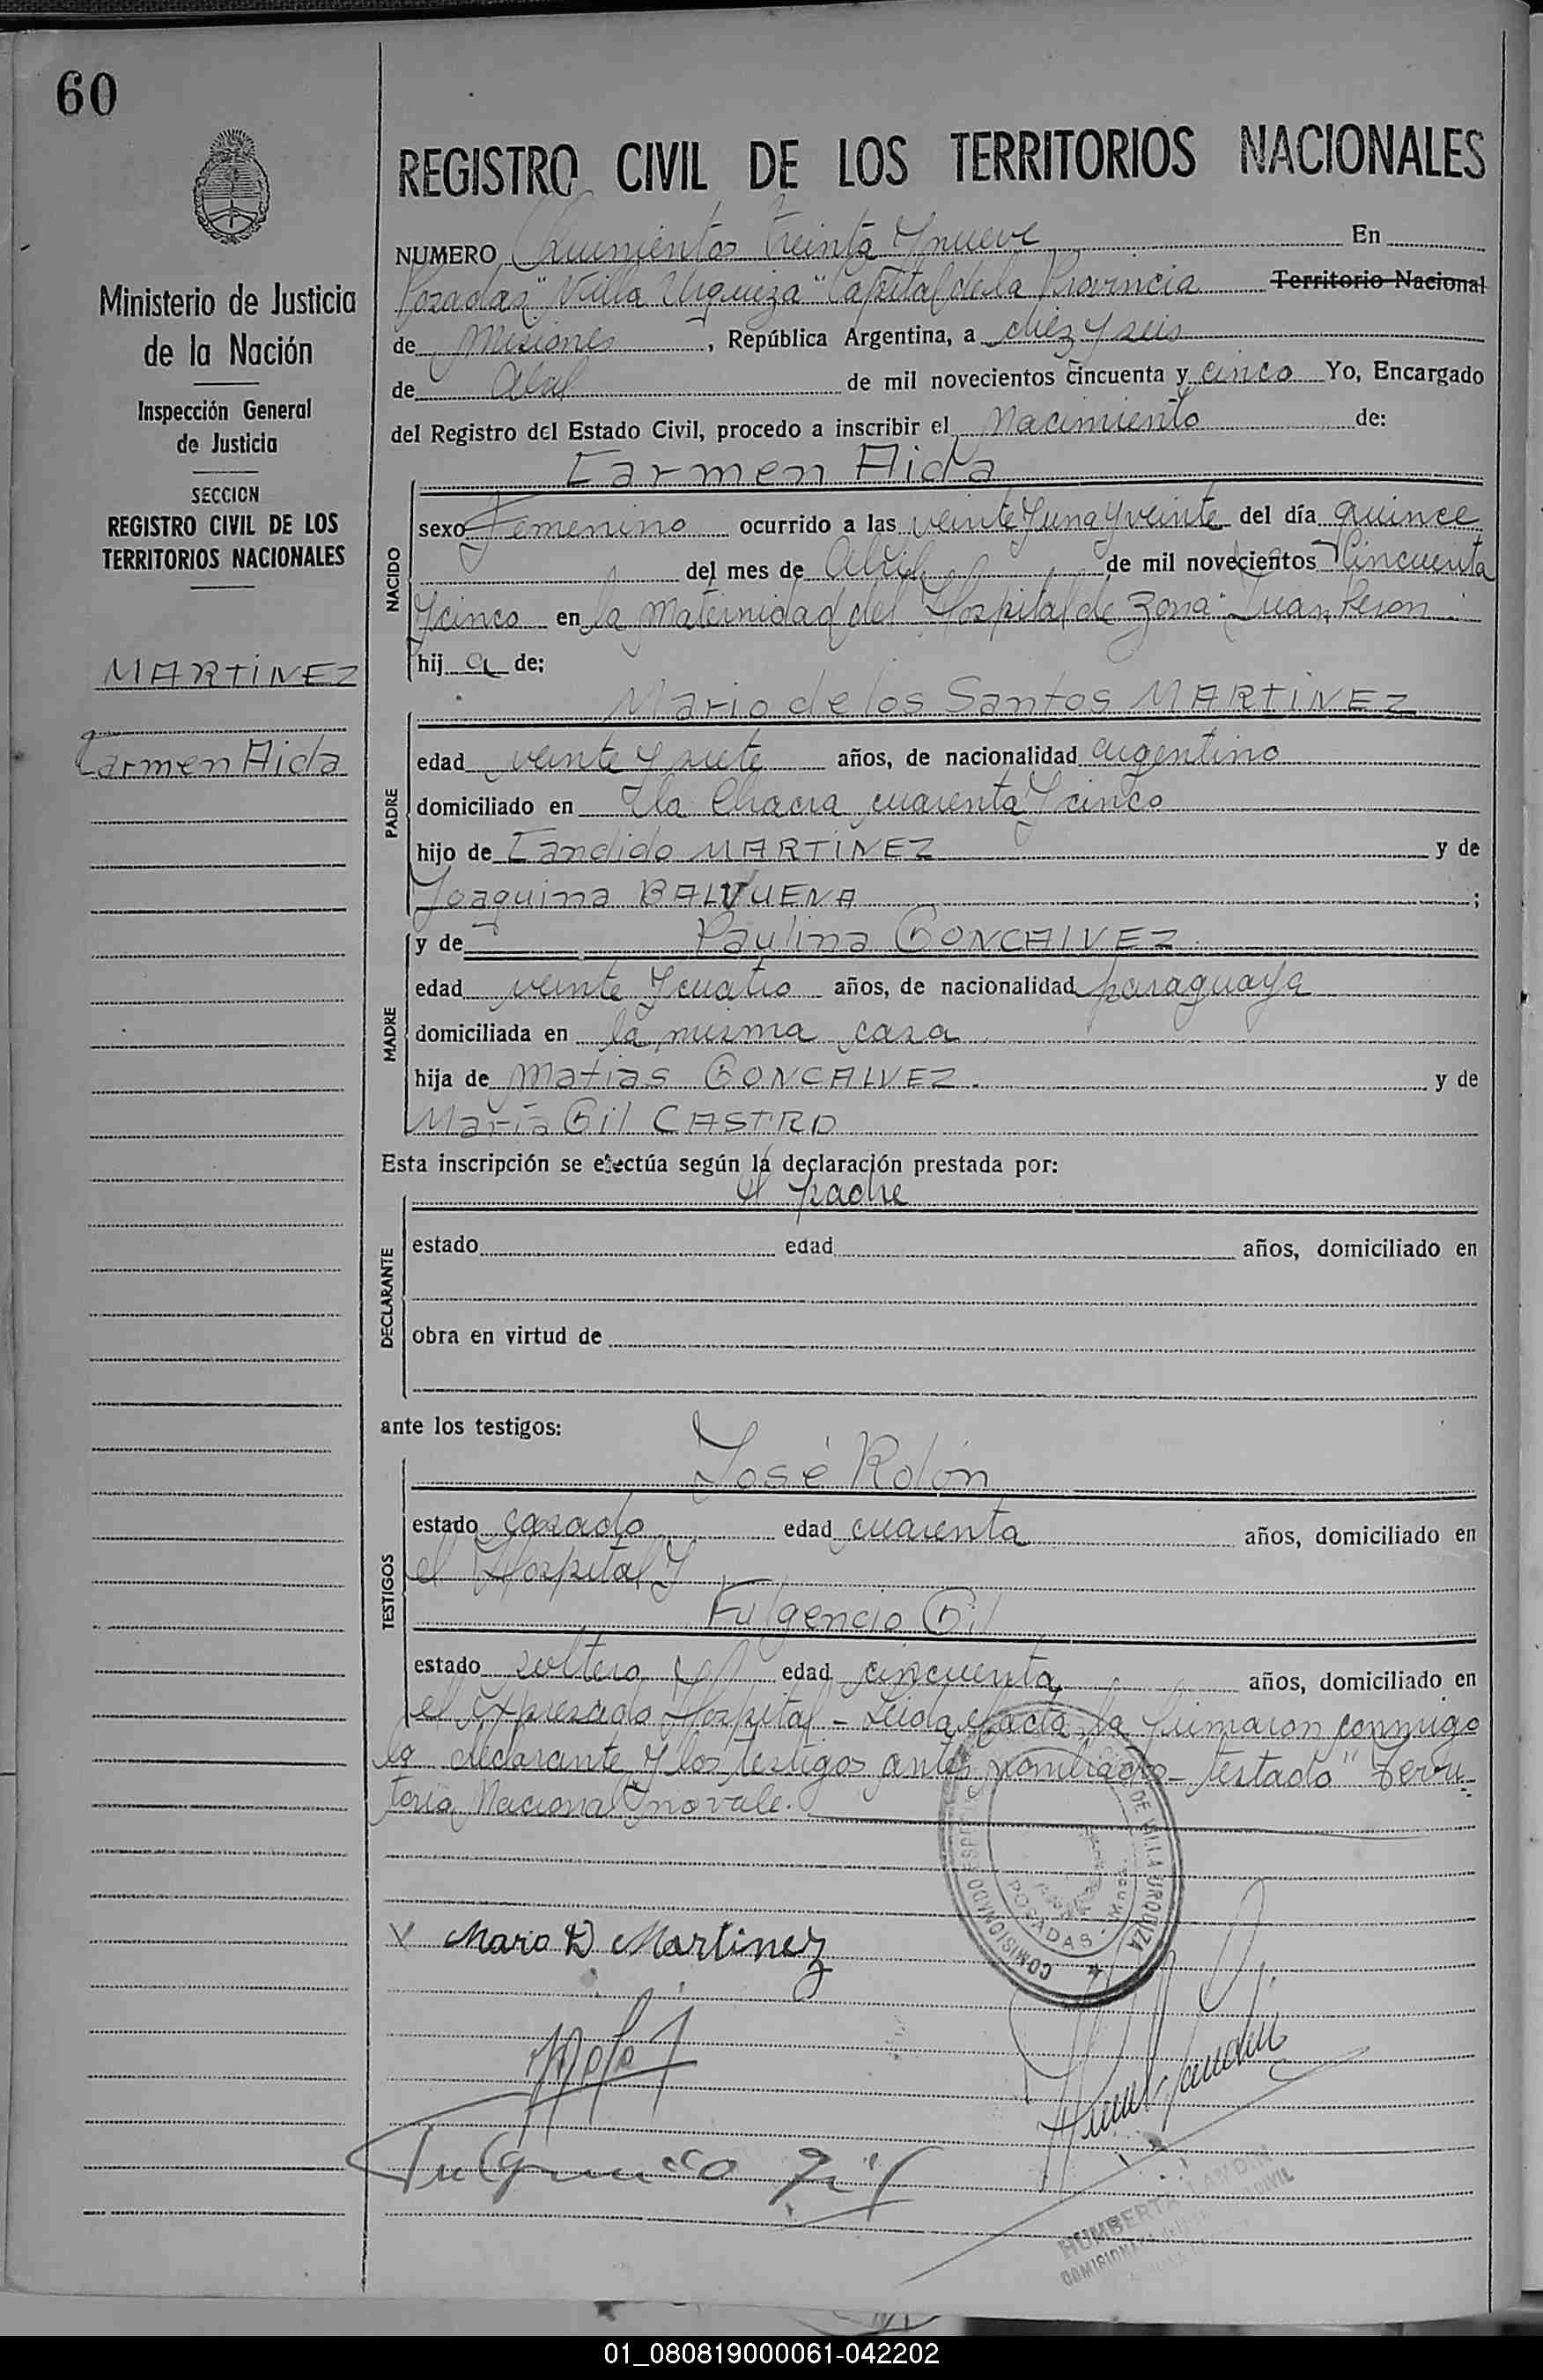 60
Ministerio de Justicia
de la Nación
Inspección General
de Justicia
SECCION
REGISTRO CIVIL DE LOS
TERRITORIOS NACIONALES
MARTINEZ
Carmen Aida
REGISTRO CIVIL DE LOS TERRITORIOS NACIONALES
NUMERO Quinientos treinta y nueve En
Posadas "Villa Urquiza" Capital de la Provincia Territorio Nacional
de Misiones, República Argentina, a diez y seis
de Abril de mil novecientos cincuenta y cinco Yo, Encargado
del Registro del Estado Civil, procedo a inscribir el Nacimiento de:
Carmen Aida
NACIDO
sexo Femenino ocurrido a las veinte y una y veinte del día quince
del mes de Abril de mil novecientos cincuenta
y cinco en la Maternidad del Hospital de Zona "Juan Peron"
hija de:
Mario de los Santos MARTINEZ
PADRE
edad veinte y siete años, de nacionalidad argentino
domiciliado en la Chacra cuarenta y cinco
hijo de Candido MARTINEZ y de
Joaquina BALVUENA ;
y de Paulina GONCALVEZ
MADRE
edad veinte y cuatro años, de nacionalidad paraguaya
domiciliada en la misma casa
hija de Matias GONCALVEZ. y de
María Gil CASTRO
Esta inscripción se efectúa según la declaración prestada por:
el padre
DECLARANTE
estado edad años, domiciliado en
obra en virtud de
ante los testigos:
José Rolón
TESTIGOS
estado casado edad cuarenta años, domiciliado en
el Hospital y
Fulgencio Gil
estado soltero edad cincuenta años, domiciliado en
el expresado Hospital - Leida el acta la firmaron conmigo
la declarante y los testigos antes nombrados - testado "Terri-
torio Nacional" no vale.
COMISIONADO DE VILLA URQUIZA
POSADAS - Mnes.
Mario D Martinez
Fulgencio Gil
HUMBERTO
01_080819000061-042202